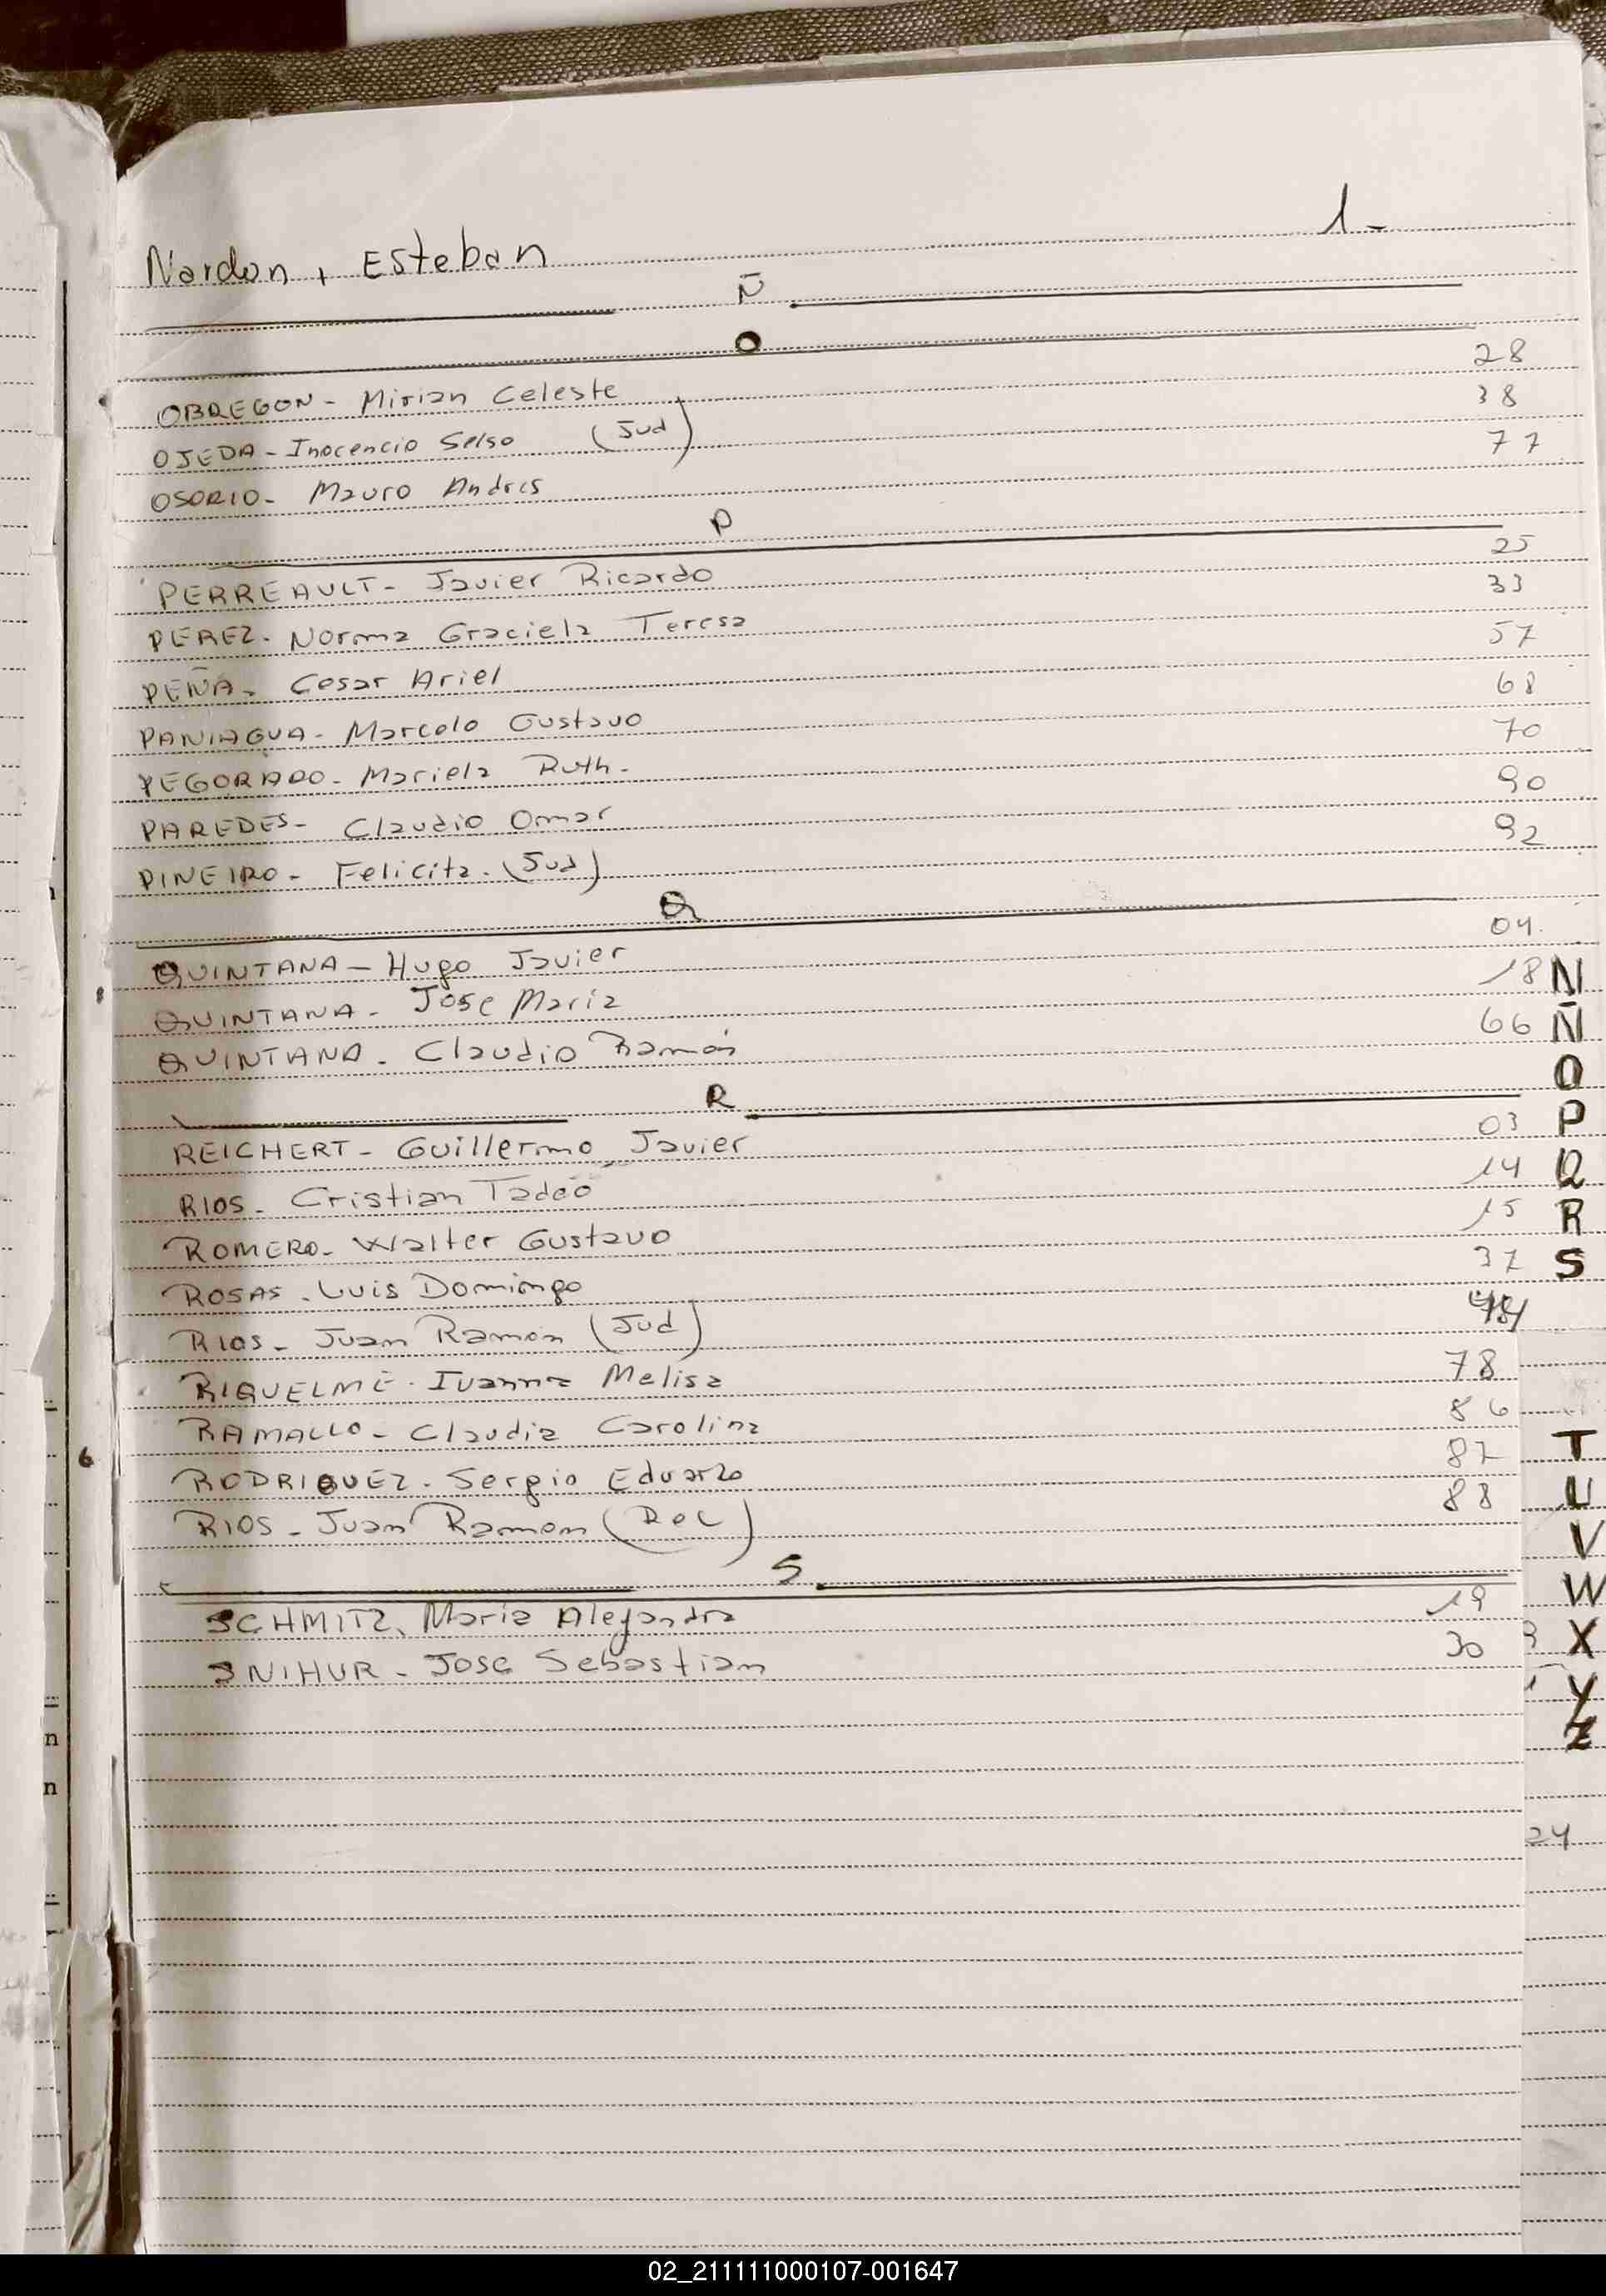 Nardon, Esteban 1-
Ñ
O
OBREGON - Mirian Celeste 28
OJEDA - Inocencio Selso (Jud) 38
OSORIO - Mauro Andres 77
P
PERREAULT - Javier Ricardo 25
PEREZ - Norma Graciela Teresa 33
PEÑA - Cesar Ariel 57
PANIAGUA - Marcelo Gustavo 68
PEGORARO - Mariela Ruth - 70
PAREDES - Claudio Omar 90
PINEIRO - Felicita - (Jud) 92
Q
QUINTANA - Hugo Javier 04
QUINTANA - Jose Maria 18
QUINTANA - Claudio Ramón 66
R
REICHERT - Guillermo Javier 03
RIOS - Cristian Tadeo 14
ROMERO - Walter Gustavo 15
ROSAS - Luis Domingo 37
RIOS - Juan Ramon (Jud)
RIQUELME - Ivanna Melisa 78
RAMALLO - Claudia Carolina 86
RODRIGUEZ - Sergio Eduardo 87
RIOS - Juan Ramon 88
S
SCHMITZ, Maria Alejandra 19
SNIHUR - Jose Sebastian 30
N
Ñ
O
P
Q
R
S
T
U
V
W
X
Y
Z
24
6
n
n
02_211111000107-001647